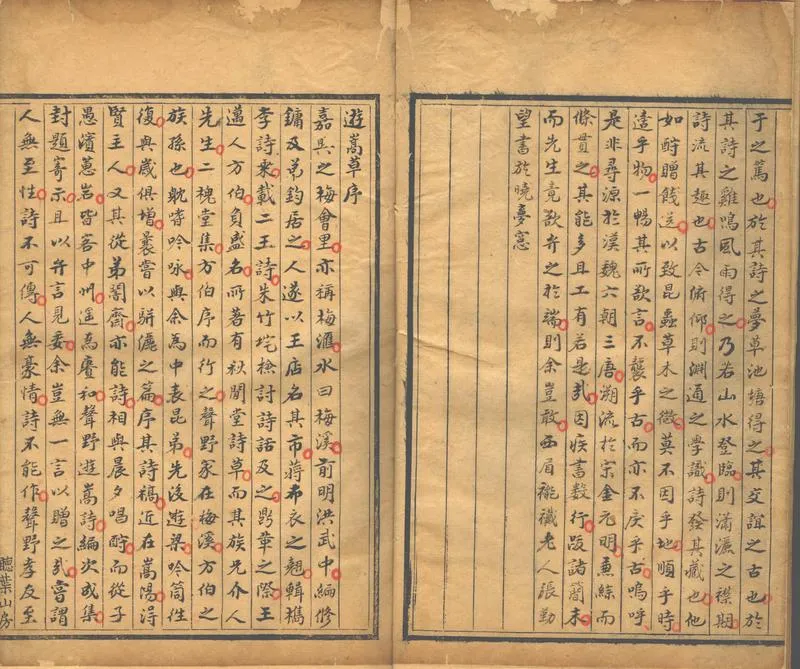 于之篤也於其詩之夢草池塘得之其交誼之古也於
其詩之雞鳴風雨得之乃若山水登臨則瀟灑之襟期
詩流其趣也古今俯仰則淵通之學識詩發其藏也他
如酧贈餞送以致昆蟲草木之微莫不因乎地順乎時
遣乎物一暢其所欲言不襲乎古而亦不戾乎古嗚呼
是非尋源於漢魏六朝三唐溯流於宋金元明兼綜而
條貫之其能多且工有若是哉因疾書數行跋諸簡末
而先生竟欲弁之於端則余豈敢西眉褦襶老人張勤
望書於曉夢窓
遊嵩草序
嘉興之梅會里亦稱梅滙水曰梅溪前明洪武中編修
鏞及弟鈞居之人遂以王店名其市蔣布衣之翹輯檇
李詩乘載二王詩朱竹垞檢討詩話及之鼎革之際王
邁人方伯負盛名所著有秋閒堂詩草而其族兄介人
先生二槐堂集方伯序而行之聲野家在梅溪方伯之
族孫也耽嗜吟咏與余為中表昆弟先後遊梁吟筒往
復與歲俱增曩嘗以駢儷之篇序其詩稿近在嵩陽得
賢主人又其從弟闇齋亦能詩相與晨夕唱酧而從子
愚濱蕙岩皆客中州遥為賡和聲野遊嵩詩編次成集
封題寄示且以弁言見委余豈無一言以贈之哉嘗謂
人無至性詩不可傳人無豪情詩不能作聲野孝友至
聽葉山房